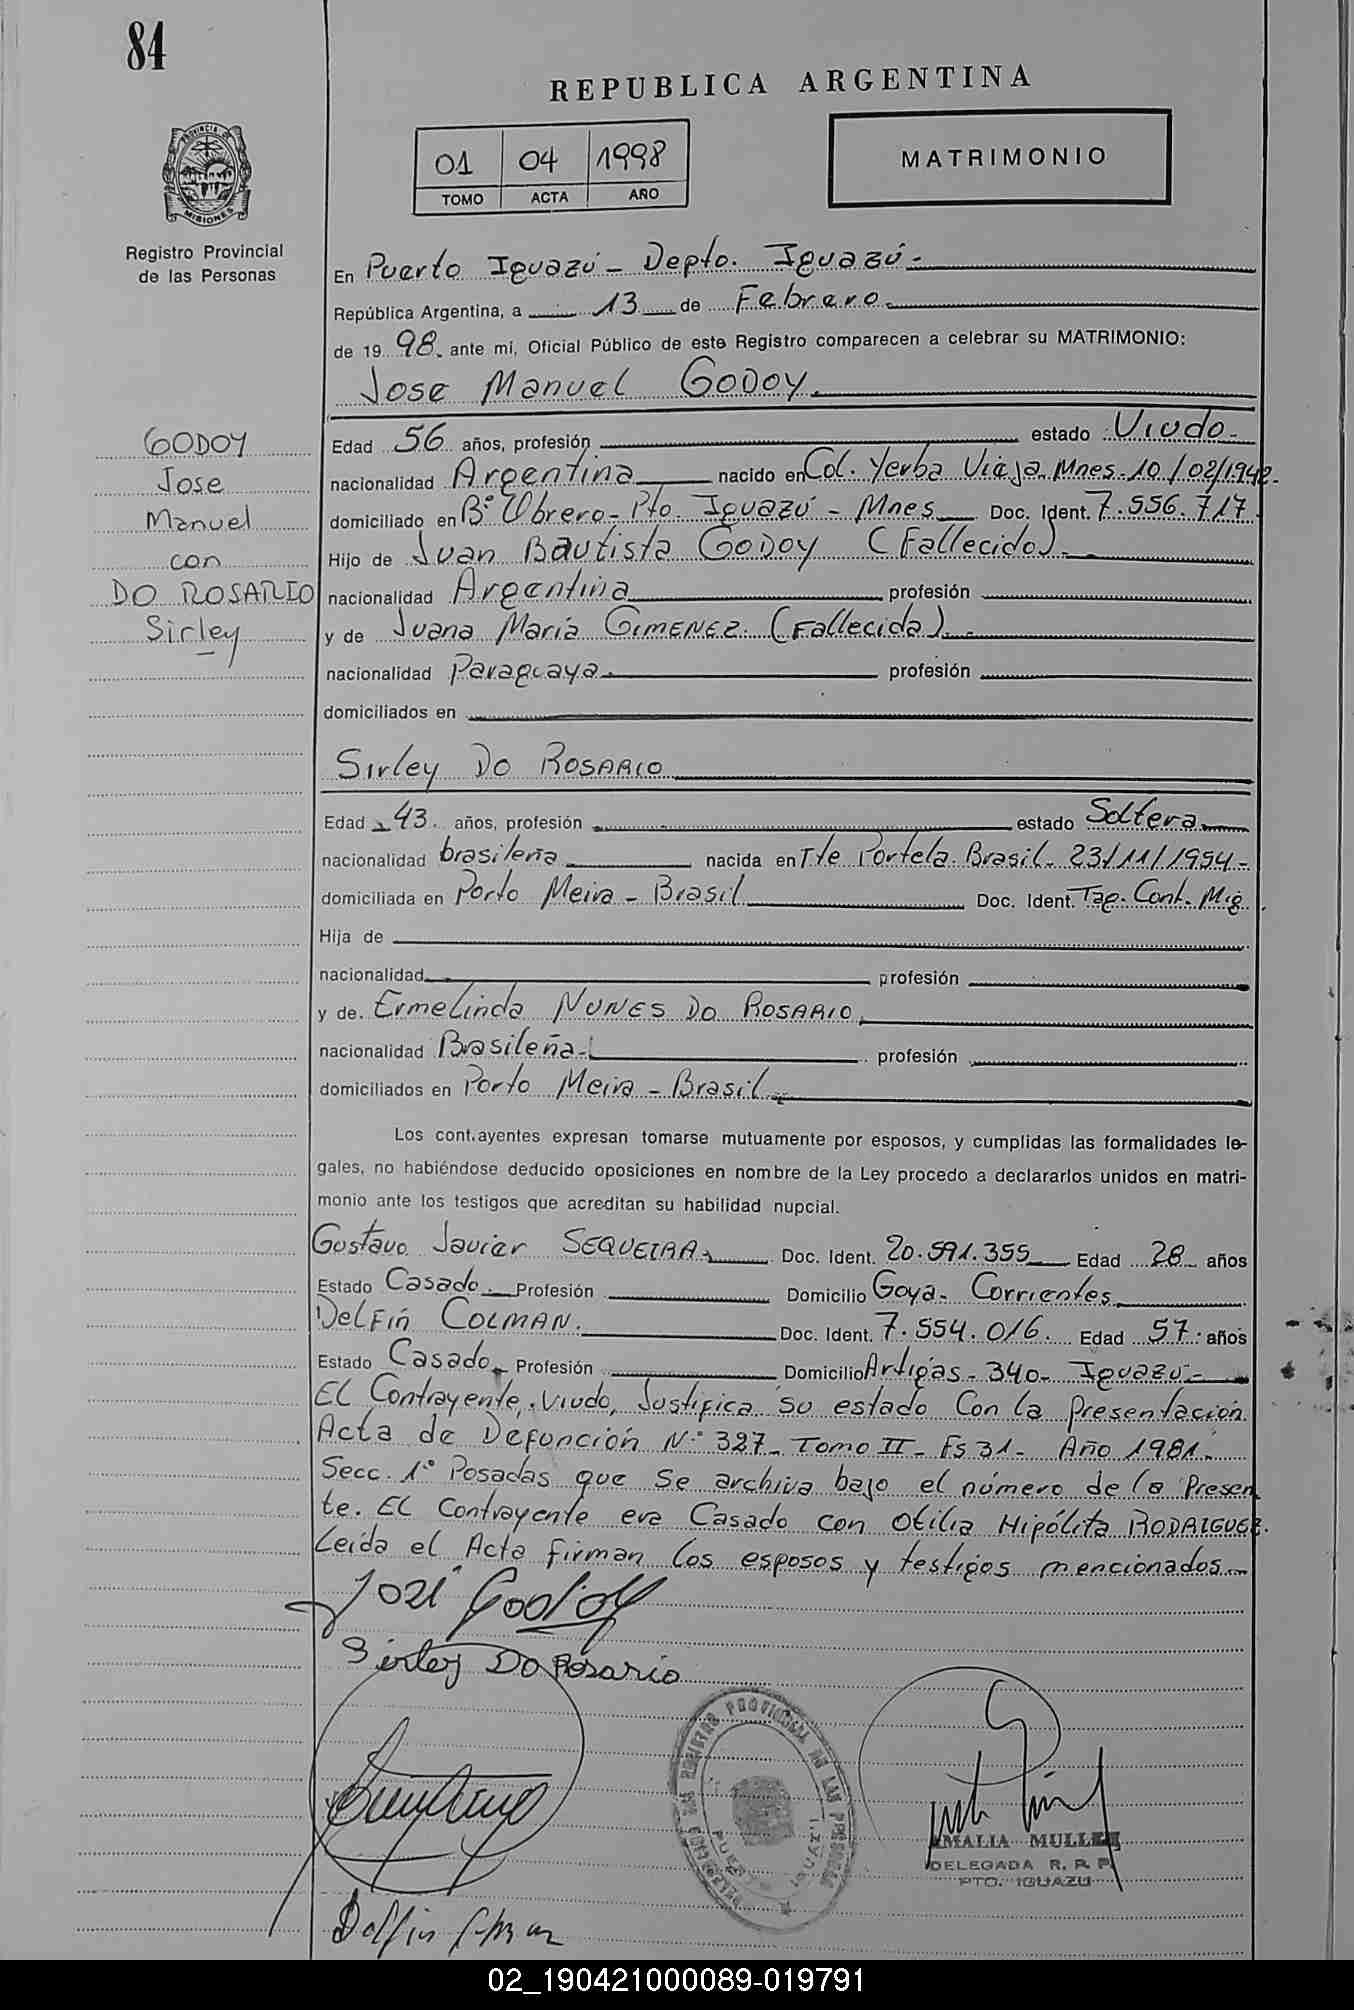 84
REPUBLICA ARGENTINA
01 04 1998
TOMO ACTA AÑO
MATRIMONIO
PROVINCIA DE MISIONES
Registro Provincial
de las Personas
En Puerto Iguazú - Depto. Iguazú.-
República Argentina, a 13 de Febrero.
de 19 98. ante mí, Oficial Público de este Registro comparecen a celebrar su MATRIMONIO:
Jose Manuel GODOY.
GODOY
Jose
Manuel
con
DO ROSARIO
Sirley
Edad 56 años, profesión estado Viudo-
nacionalidad Argentina nacido en Col. Yerba Vieja Mnes-10/02/1942-
domiciliado en B° Obrero- Pto. Iguazú - Mnes Doc. Ident. 7.556.717.
Hijo de Juan Bautista GODOY (Fallecido).
nacionalidad Argentina profesión
y de Juana María GIMENEZ. (Fallecida).
nacionalidad Paraguaya. profesión
domiciliados en
Sirley DO ROSARIO
Edad 43. años, profesión estado Soltera
nacionalidad brasileña nacida en Tte Portela. Brasil- 23/11/1954-
domiciliada en Porto Meira - Brasil Doc. Ident. Tag. Cont. Mig.
Hija de
nacionalidad profesión
y de. Ermelinda NUNES DO ROSARIO,
nacionalidad Brasileña- profesión
domiciliados en Porto Meira - Brasil
Los cont.ayentes expresan tomarse mutuamente por esposos, y cumplidas las formalidades le-
gales, no habiéndose deducido oposiciones en nombre de la Ley procedo a declararlos unidos en matri-
monio ante los testigos que acreditan su habilidad nupcial.
Gustavo Javier SEQUEIRA Doc. Ident. 20.591.355 Edad 28 años
Estado Casado Profesión Domicilio Goya- Corrientes
Delfín COLMAN. Doc. Ident. 7.554.016. Edad 57 años
Estado Casado Profesión Domicilio Artigas- 340- Iguazú-
El Contrayente, Viudo, Justifica su estado Con la Presentación
Acta de Defunción N° 327- Tomo II- Fs 31- Año 1981.
Secc. 1° Posadas que se archiva bajo el número de la Presen
te. El Contrayente era Casado con Otilia Hipólita RODRIGUEZ.
Leída el Acta firman los esposos y testigos mencionados
José Godoy
Sirley Do Rosario
REGISTRO PROVINCIAL DE LAS PERSONAS
AMALIA MULLER
DELEGADA R. P. P.
PTO. IGUAZU
Delfin Colman
02_190421000089-019791